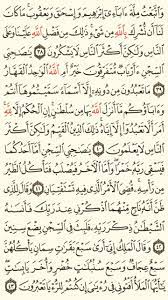 وَٱتَّبَعْتُ مِلَّةَ ءَابَآءِىٓ إِبْرَٰهِيمَ وَإِسْحَٰقَ وَيَعْقُوبَ مَا كَانَ
لَنَآ أَن نُّشْرِكَ بِٱللَّهِ مِن شَىْءٍ ذَٰلِكَ مِن فَضْلِ ٱللَّهِ عَلَيْنَا وَعَلَى
ٱلنَّاسِ وَلَٰكِنَّ أَكْثَرَ ٱلنَّاسِ لَا يَشْكُرُونَ ٣٨ يَٰصَٰحِبَىِ
ٱلسِّجْنِ ءَأَرْبَابٌ مُّتَفَرِّقُونَ خَيْرٌ أَمِ ٱللَّهُ ٱلْوَٰحِدُ ٱلْقَهَّارُ
٣٩ مَا تَعْبُدُونَ مِن دُونِهِۦٓ إِلَّآ أَسْمَآءً سَمَّيْتُمُوهَآ أَنتُمْ
وَءَابَآؤُكُم مَّآ أَنزَلَ ٱللَّهُ بِهَا مِن سُلْطَٰنٍ إِنِ ٱلْحُكْمُ إِلَّا لِلَّهِ
أَمَرَ أَلَّا تَعْبُدُوٓا۟ إِلَّآ إِيَّاهُ ذَٰلِكَ ٱلدِّينُ ٱلْقَيِّمُ وَلَٰكِنَّ أَكْثَرَ
ٱلنَّاسِ لَا يَعْلَمُونَ ٤٠ يَٰصَٰحِبَىِ ٱلسِّجْنِ أَمَّآ
أَحَدُكُمَا فَيَسْقِى رَبَّهُۥ خَمْرًا وَأَمَّا ٱلْءَاخَرُ فَيُصْلَبُ فَتَأْكُلُ ٱلطَّيْرُ
مِن رَّأْسِهِۦ قُضِىَ ٱلْأَمْرُ ٱلَّذِى فِيهِ تَسْتَفْتِيَانِ ٤١ وَقَالَ لِلَّذِى
ظَنَّ أَنَّهُۥ نَاجٍ مِّنْهُمَا ٱذْكُرْنِى عِندَ رَبِّكَ فَأَنسَىٰهُ
ٱلشَّيْطَٰنُ ذِكْرَ رَبِّهِۦ فَلَبِثَ فِى ٱلسِّجْنِ بِضْعَ سِنِينَ
٤٢ وَقَالَ ٱلْمَلِكُ إِنِّىٓ أَرَىٰ سَبْعَ بَقَرَٰتٍ سِمَانٍ يَأْكُلُهُنَّ
سَبْعٌ عِجَافٌ وَسَبْعَ سُنۢبُلَٰتٍ خُضْرٍ وَأُخَرَ يَابِسَٰتٍ
يَٰٓأَيُّهَا ٱلْمَلَأُ أَفْتُونِى فِى رُءْيَٰىَ إِن كُنتُمْ لِلرُّءْيَا تَعْبُرُونَ ٤٣